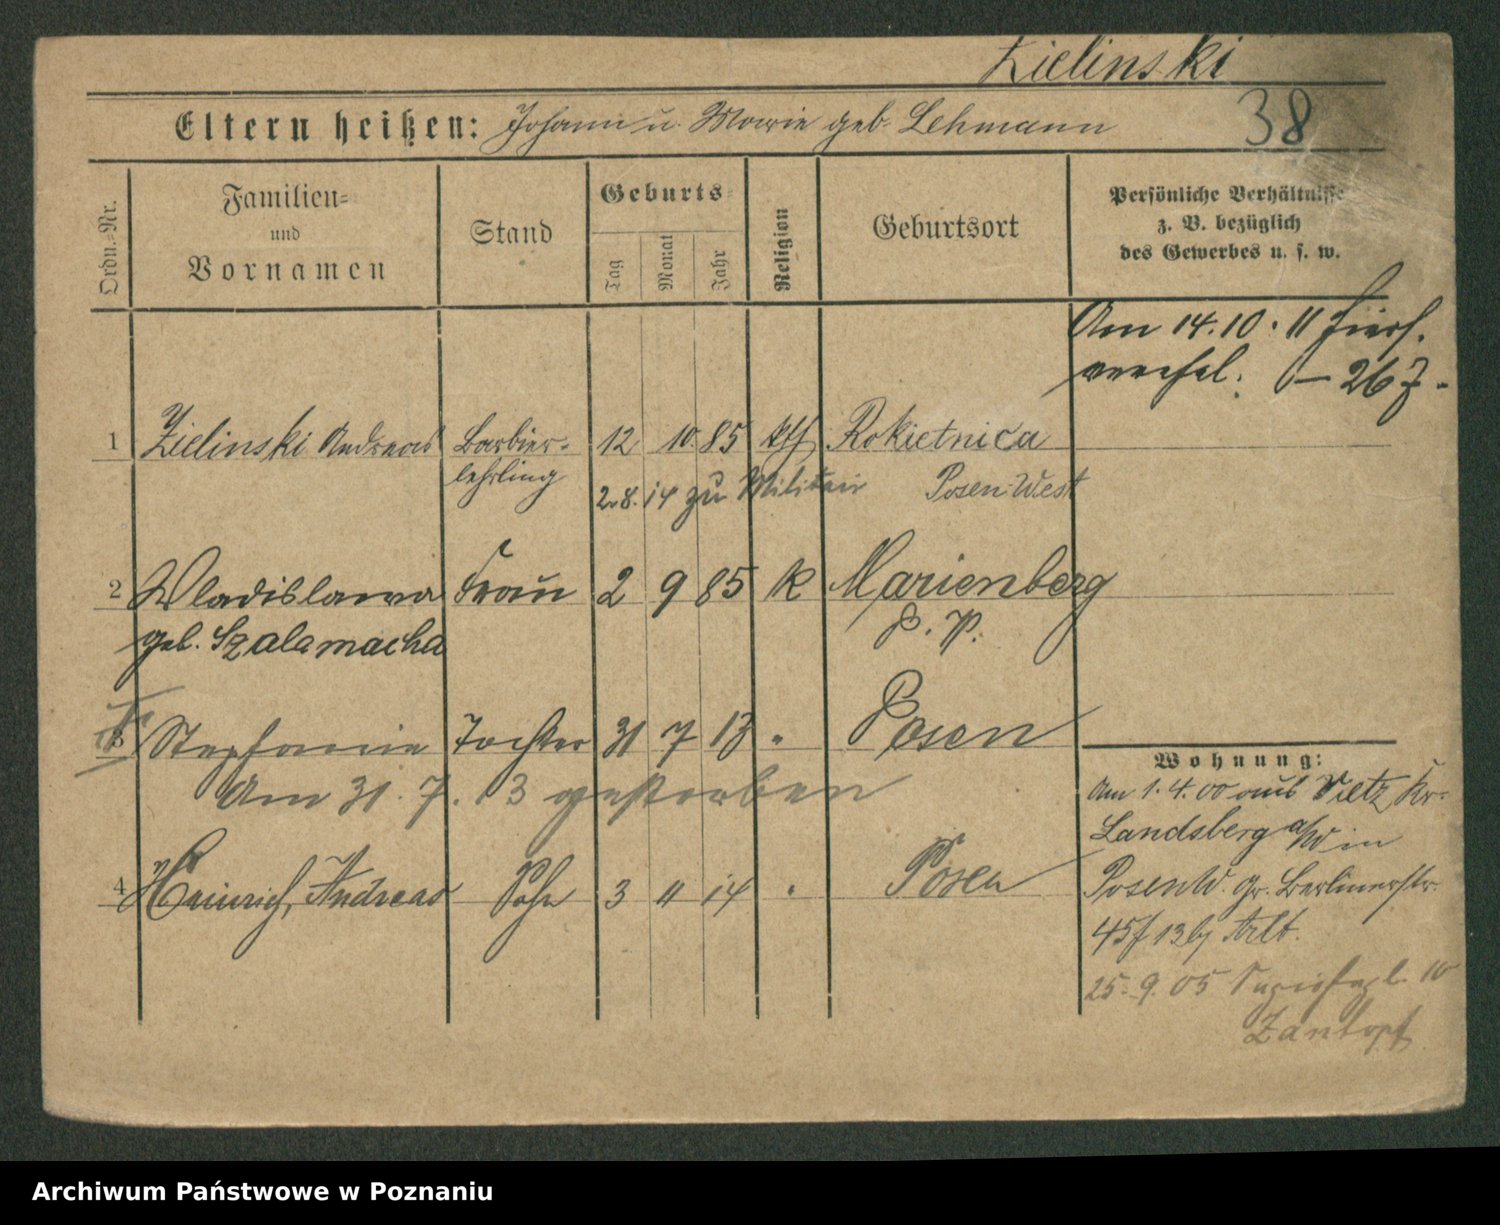 Zielinski
Eltern heißen: Johann u. Marie geb. Lehmann
38
Ordn.-Nr.
Familien-
und
Vornamen
Stand
Geburts-
Tag
Monat
Jahr
Religion
Geburtsort
Persönliche Verhältnisse
z. B. bezüglich
des Gewerbes u. s. w.
Am 14.10.11 hier
verehel. 267
1 Zielinski Andreas Barbier- 12 10. 85 kth Rokietnica
lehrling
2.8.14 zu Militair Posen-West
2 Wladislawa Frau 2 9 85 k Marienberg
geb. Szalamacha P. P.
3 Stephanie Tochter 31 7 13 " Posen
Am 31.7.13 gestorben
4 Heinrich, Andreas Sohn 3 11 14 " Posen
Wohnung:
Am 1.4.00 aus Vietz Kr.
Landsberg a/W in
Posen W. Gr. Berlinerstr.
45 Arlt.
25.9.05 10
Zantopf
Archiwum Państwowe w Poznaniu